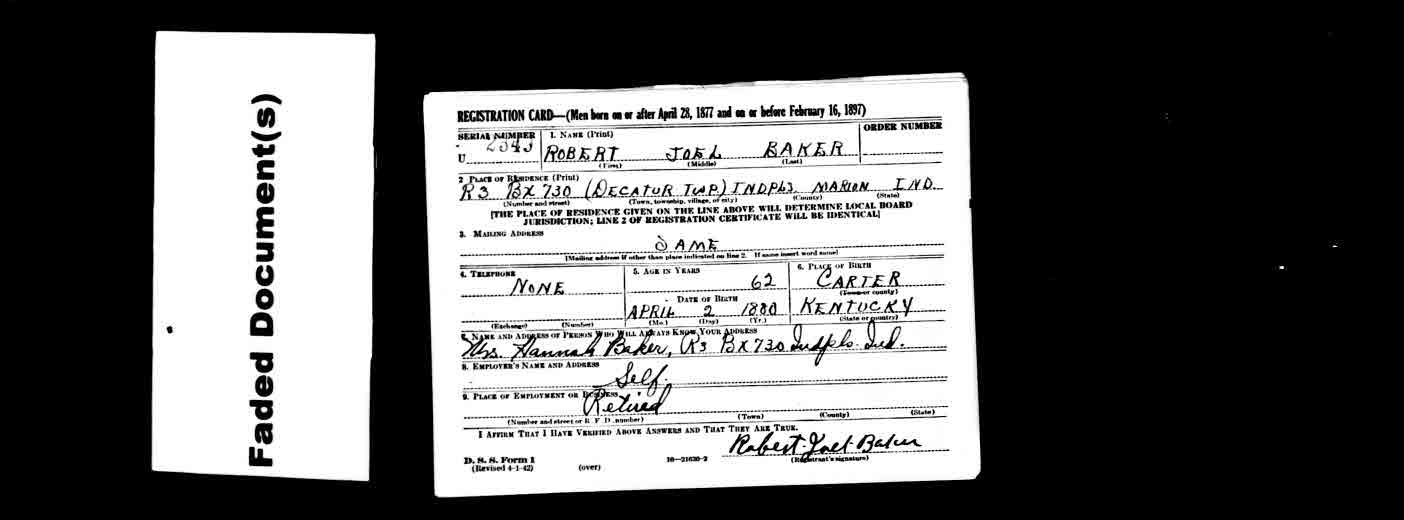 Faded Document(s)
REGISTRATION CARD—(Men born on or after April 28, 1877 and on or before February 16, 1897)
SERIAL NUMBER 1. NAME (Print) ORDER NUMBER
U 2343 ROBERT JOEL BAKER
(First) (Middle) (Last)
2 PLACE OF RESIDENCE (Print)
R3 BX 730 (DECATUR TWP.) INDPLS. MARION IND.
(Number and street) (Town, township, village, or city) (County) (State)
[THE PLACE OF RESIDENCE GIVEN ON THE LINE ABOVE WILL DETERMINE LOCAL BOARD
JURISDICTION; LINE 2 OF REGISTRATION CERTIFICATE WILL BE IDENTICAL]
3. MAILING ADDRESS
SAME
[Mailing address if other than place indicated on line 2. If same insert word same]
4. TELEPHONE 5. AGE IN YEARS 6. PLACE OF BIRTH
NONE 62 CARTER
(Town or county)
DATE OF BIRTH
APRIL 2 1880 KENTUCKY
(Exchange) (Number) (Mo.) (Day) (Yr.) (State or country)
7. NAME AND ADDRESS OF PERSON WHO WILL ALWAYS KNOW YOUR ADDRESS
Mrs. Hannah Baker, R3 BX 730 Indpls. Ind.
8. EMPLOYER'S NAME AND ADDRESS
Self.
9. PLACE OF EMPLOYMENT OR BUSINESS
Retired
(Number and street or R. F. D. number) (Town) (County) (State)
I AFFIRM THAT I HAVE VERIFIED ABOVE ANSWERS AND THAT THEY ARE TRUE.
Robert Joel Baker
D. S. S. Form 1 16—21630-2 (Registrant's signature)
(Revised 4-1-42) (over)